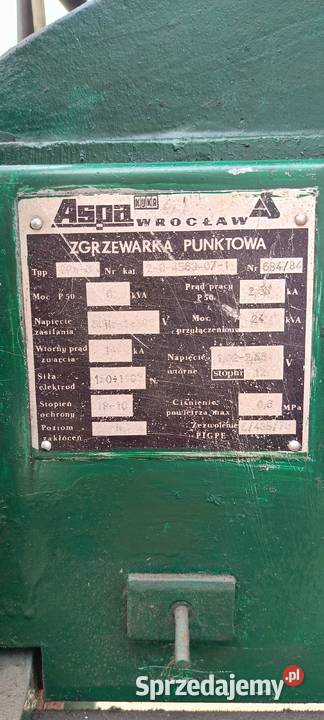 Aspa KUKA
WROCŁAW
ZGRZEWARKA PUNKTOWA
Typ Nr kat 2-0-4563-07-1 Nr 684/84
Moc P50 6 kVA
Prąd pracy P50 kA
Napięcie zasilania V
Moc przyłączeniowa 24
Wtórny prąd zwarcia kA
Napięcie wtórne V
stopni
Siła elektrod N
Stopień ochrony IP-10
Ciśnienie powietrza max 0,6 MPa
Poziom zakłóceń N
Zezwolenie PIGPE
Sprzedajemy.pl